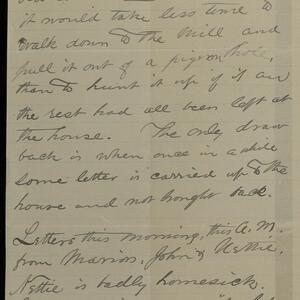 it would take less time to
walk down to the Mill and
pull it out of a pigeon hole,
than to hunt it up if it and
the rest had all been left at
the house. The only draw
back is when once in a while
some letter is carried up to the
house and not brought back.
Letters this morning, this A.M.
from Marion, John & Nettie.
Nettie is badly homesick.